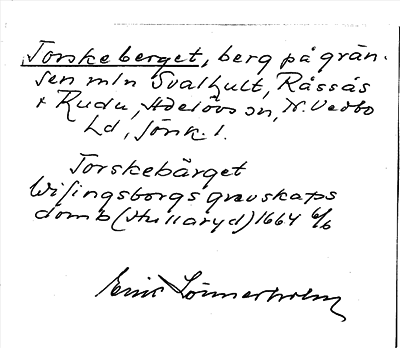 Torskeberget, berg på grän-
sen mln Svalhult, Råssås
+ Rudu, Adelövs sn, N. Vedbo
hd, Jönk. l.
Torskebärget
Wisingsborgs grevskaps
domb (Hullaryd) 1664 6/6
Eric Lönnerholm